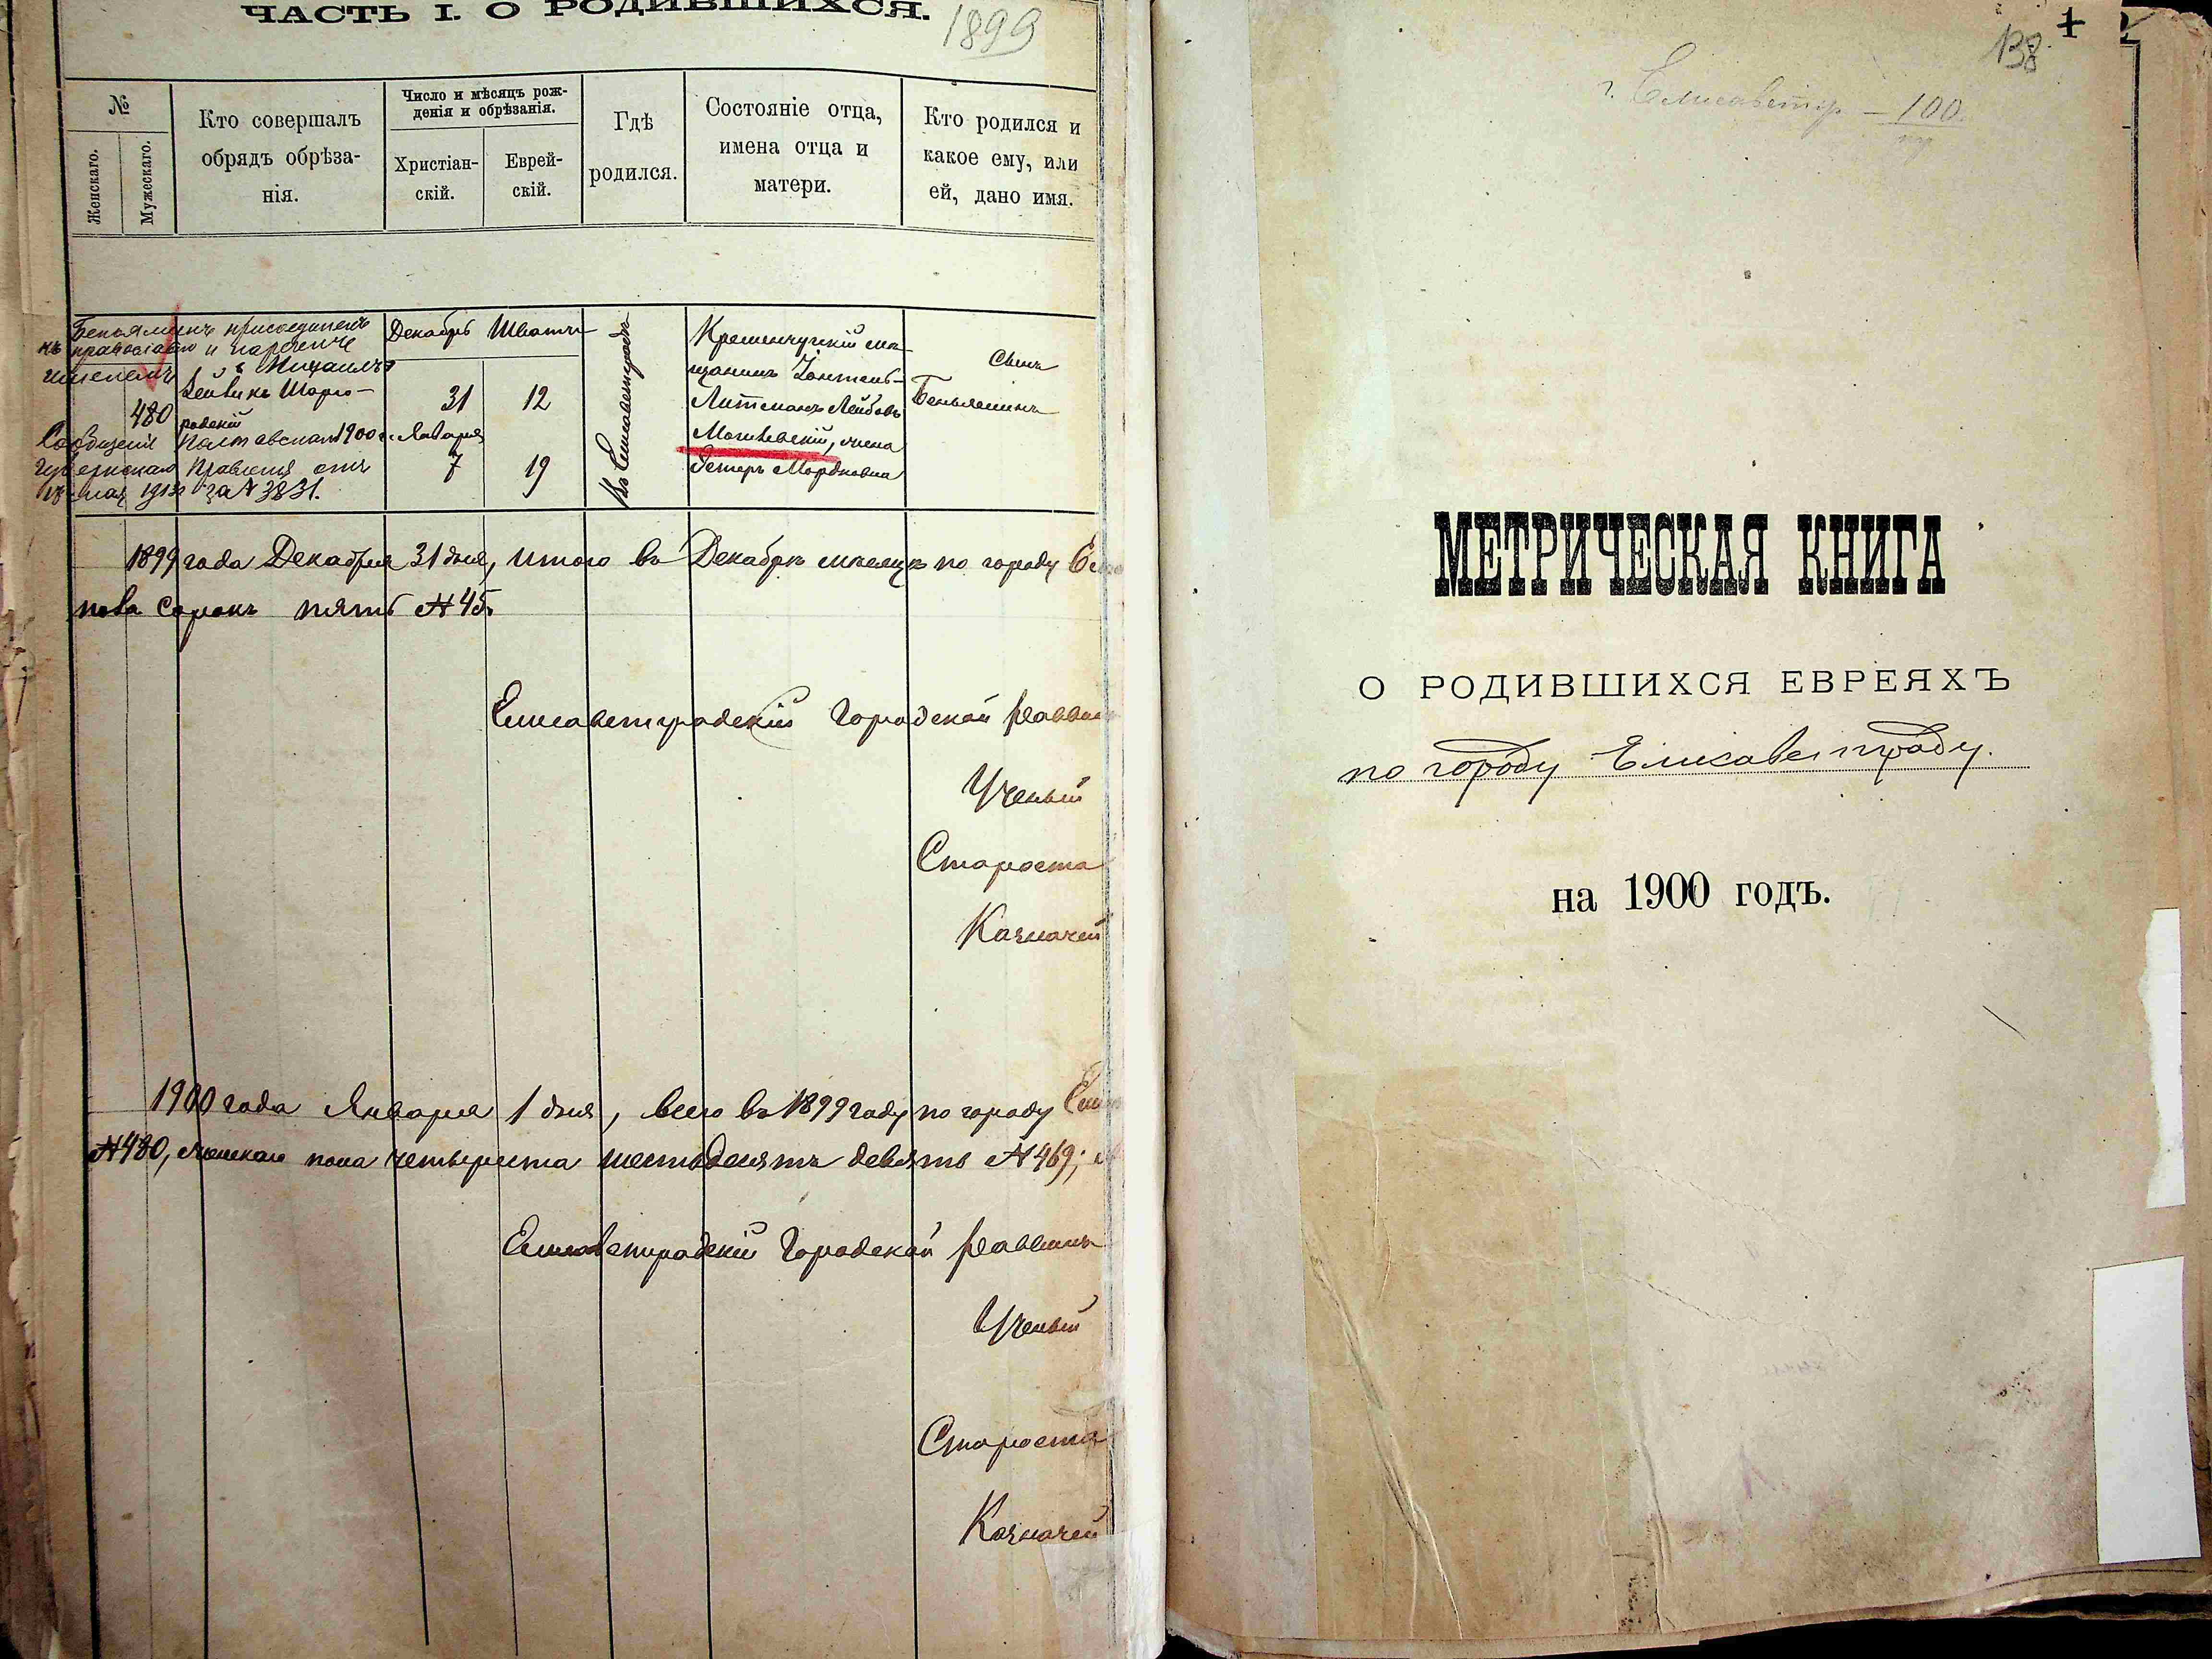 ЧАСТЬ I. О РОДИВШИХСЯ.
1899
№
Женскаго.
Мужескаго.
Кто совершалъ
обрядъ обрѣза-
нія.
Число и мѣсяцъ рож-
денія и обрѣзанія.
Христіан-
скій.
Еврей-
скій.
Гдѣ
родился.
Состояніе отца,
имена отца и
матери.
Кто родился и
какое ему, или
ей, дано имя.
Беньяминъ присоединенъ
къ православію и нареченъ
именемъ Михаилъ
480
Сообщеніе Полтавскаго
Губернскаго Правленія отъ
мая 1913 за № 3831.
Декабрь Шватъ
31 12
1900 г. Января
7 19
Въ Елисаветградѣ
Кременчугскій мѣ-
щанинъ
Литманъ Лейбовъ
Могилевскій, жена
Эстеръ Мордковна
Сынъ
Беньяминъ
1899 года Декабря 31 дня, итого въ Декабрѣ мѣсяцѣ по городу
пола сорокъ пять № 45.
Елисаветградскій Городской Раввинъ
Ученый
Староста
Казначей
1900 года Января 1 дня, всего въ 1899 году по городу
№ 480, женскаго пола четыреста шестьдесятъ девять № 469;
Елисаветградскій Городской Раввинъ
Ученый
Староста
Казначей
138
г. Елисаветгр — 100
МЕТРИЧЕСКАЯ КНИГА
О РОДИВШИХСЯ ЕВРЕЯХЪ
по городу Елисаветграду.
на 1900 годъ.